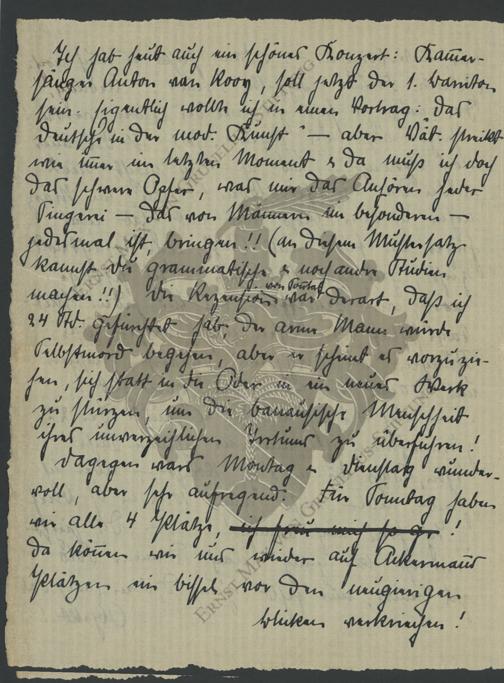 Ich hab heut auch ein schönes Konzert: Kam̅er-
sänger Anton van Rooy, soll jetzt der 1. Bariton
sein. Eigentlich wollte ich in einen Vortrag: „Das
Deutsche in der mod. Kunst" — aber Vat. streikt
wie im̅er im letzten Moment & da muß ich doch
das schwere Opfer, was mir das Anhören jeder
Singerei — das von Männern im besonderen —
jedesmal ist, bringen!! (an diesem Mustersatz
kannst du grammatische & noch andre Studien
machen!!) Die Rezension von Sonntag war derart, daß ich
24 Std. gefürchtet hab, der arme Mann würde
Selbstmord begehen, aber er scheint es vorzuzie-
hen, sich statt in die Oder in ein neues Werk
zu stürzen, um die banausische Menschheit
ihres unverzeihlichen Irrtums zu überführen!
Dagegen wars Montag & Dienstag wunder-
voll, aber sehr aufregend. Für Sonntag haben
wir alle 4 Plätze, ich freu mich so !
da kön̅en wir uns wieder auf Ackermanns
Plätzen ein bissel vor den neugierigen
Blicken verkriechen!
ERNST M